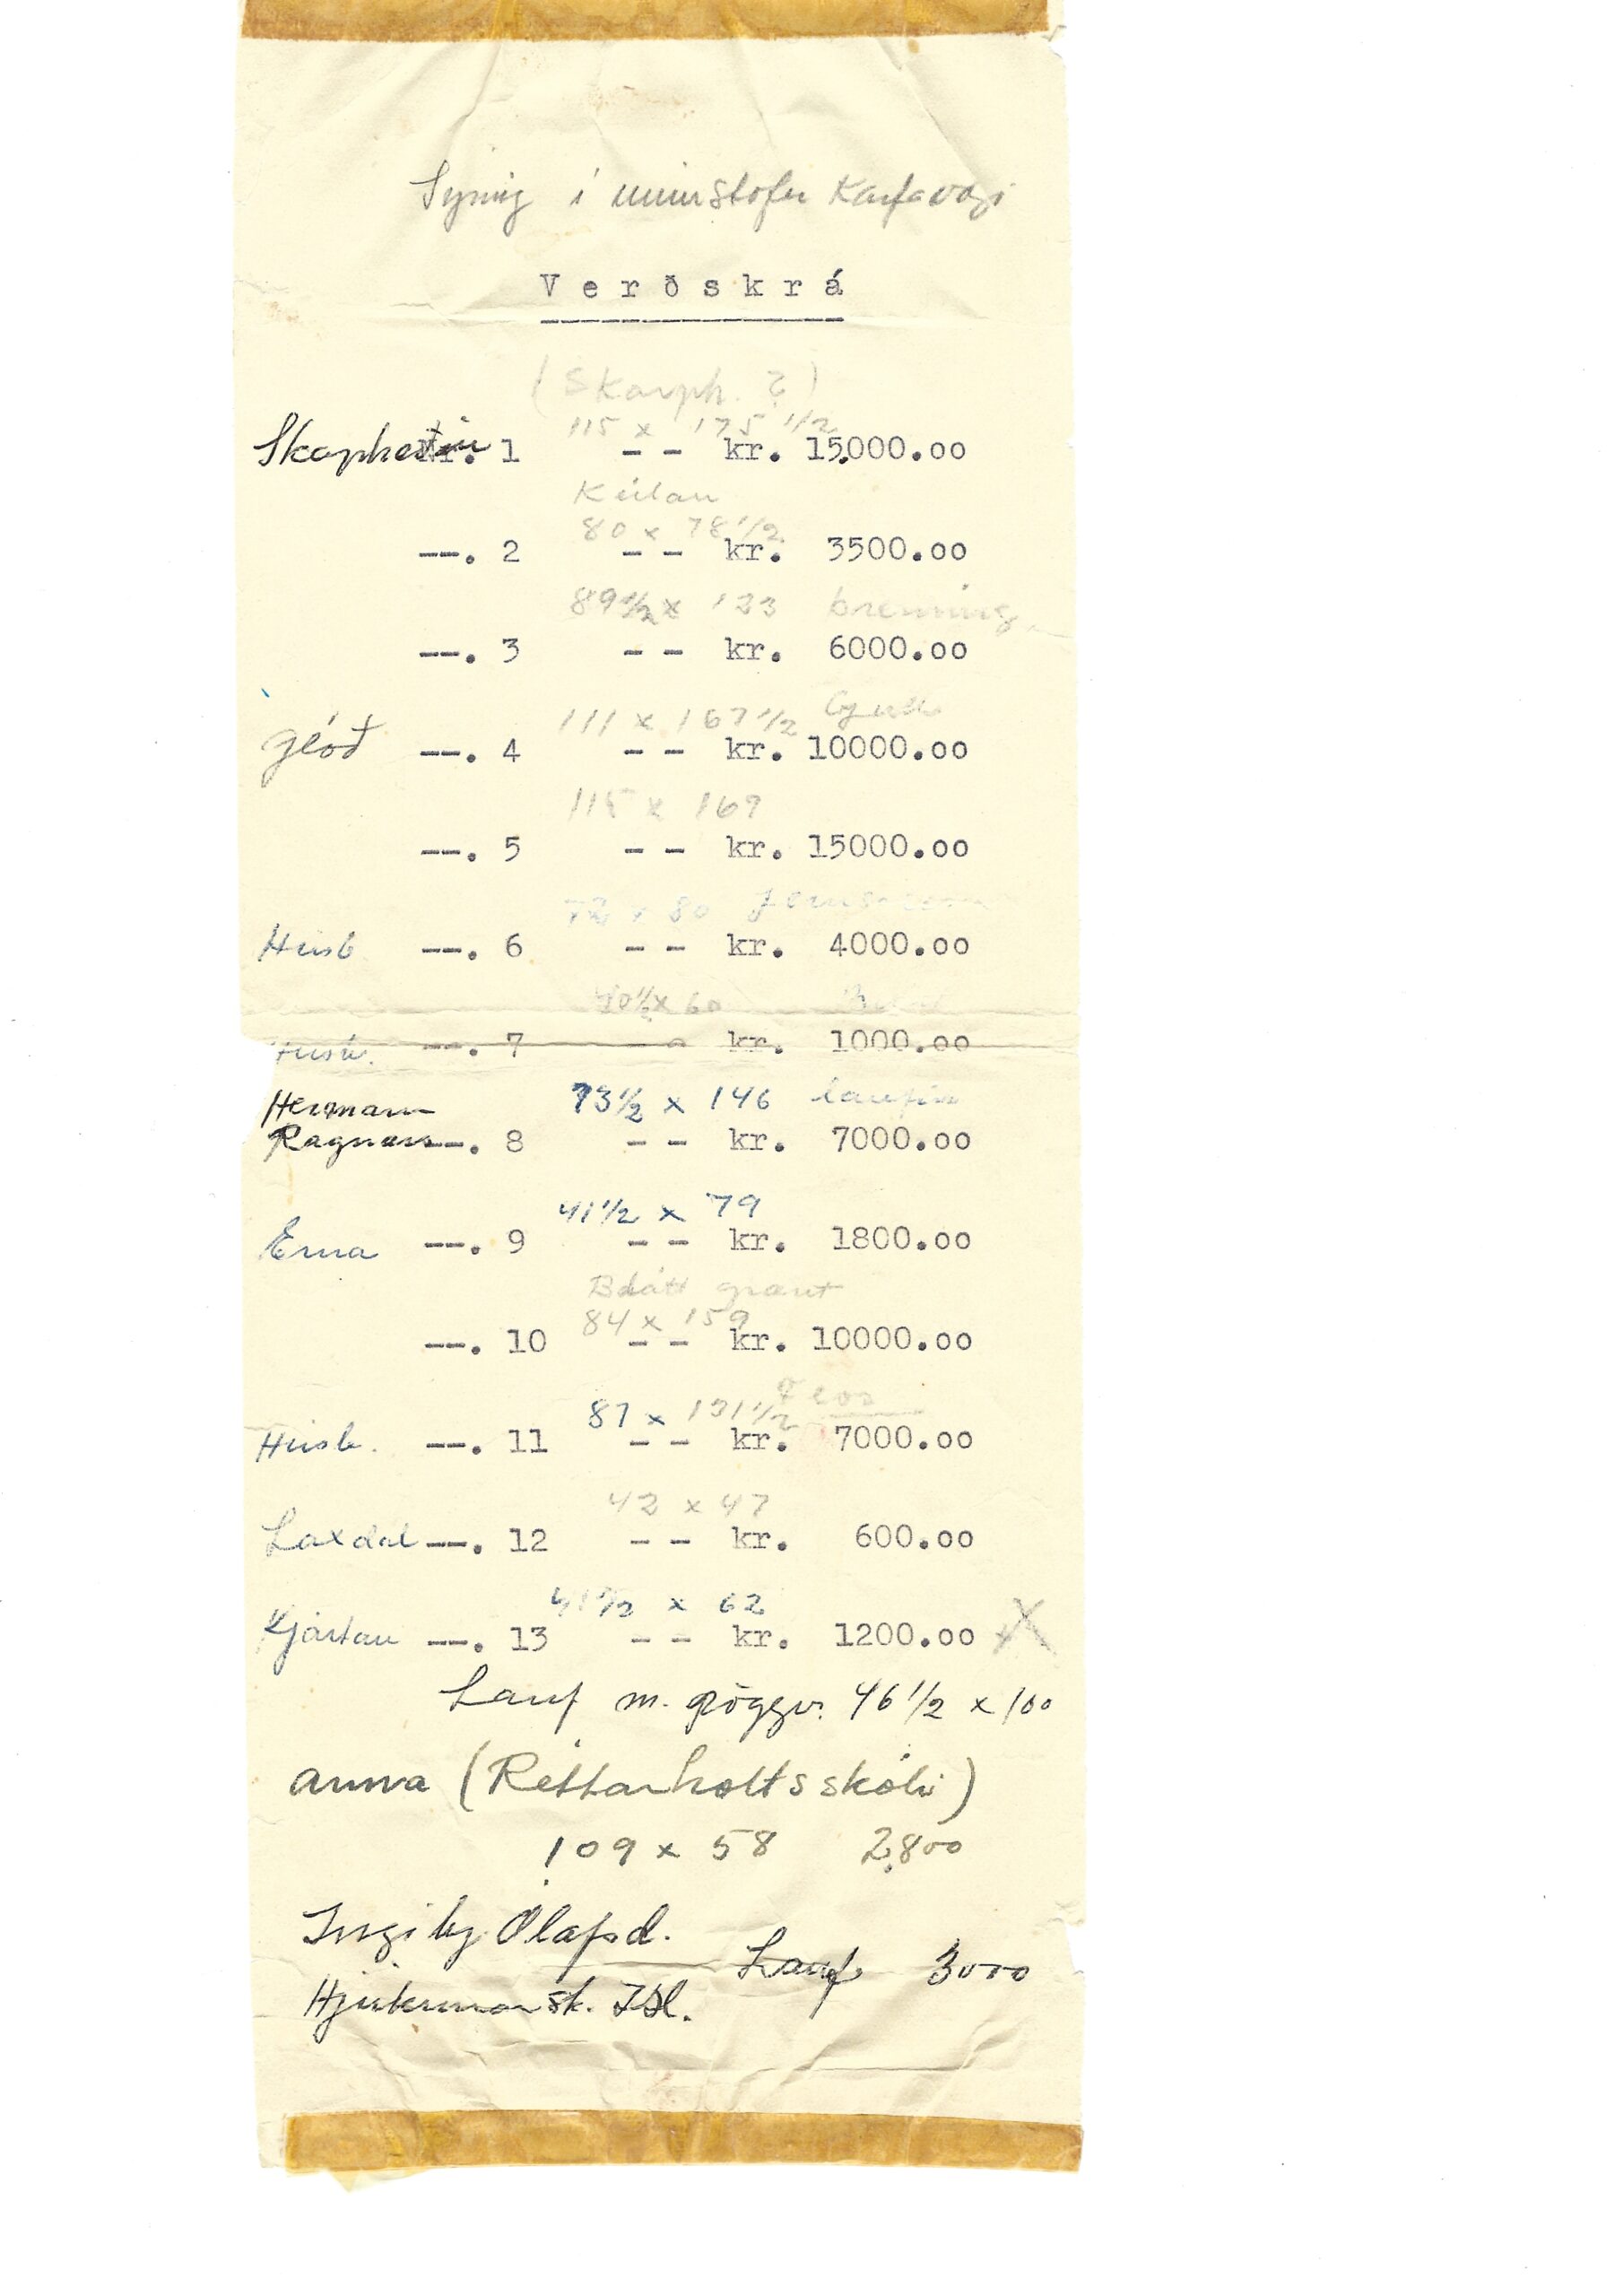 Syning í vinnustofu Karfavogi
Verðskrá
(Skarph. ?)
115 x 175 1/2
Skapheðin Nr. 1 -- kr. 15.000.00
Kúlan
80 x 78 1/2
--. 2 -- kr. 3500.00
89 1/2 x 133 brenning
--. 3 -- kr. 6000.00
111 x 167 1/2
Glóð --. 4 -- kr. 10000.00
115 x 169
--. 5 -- kr. 15000.00
72 x 80
Húsb --. 6 -- kr. 4000.00
40 1/2 x 60
Húsb. --. 7 -- kr. 1000.00
Hermann 73 1/2 x 146 laufin
Ragnars --. 8 -- kr. 7000.00
41 1/2 x 79
Erna --. 9 -- kr. 1800.00
Blátt grænt
84 x 159
--. 10 -- kr. 10000.00
87 x 131 1/2
Húsb. --. 11 -- kr. 7000.00
42 x 47
Laxdal --. 12 -- kr. 600.00
41 1/2 x 62
Kjartan --. 13 -- kr. 1200.00 X
Lauf m. 46 1/2 x 100
Anna (Réttarholtsskóli)
109 x 58 2.800
Ingibj Ólafsd.
Lauf 3000
Hjúkrunarsk. Ísl.